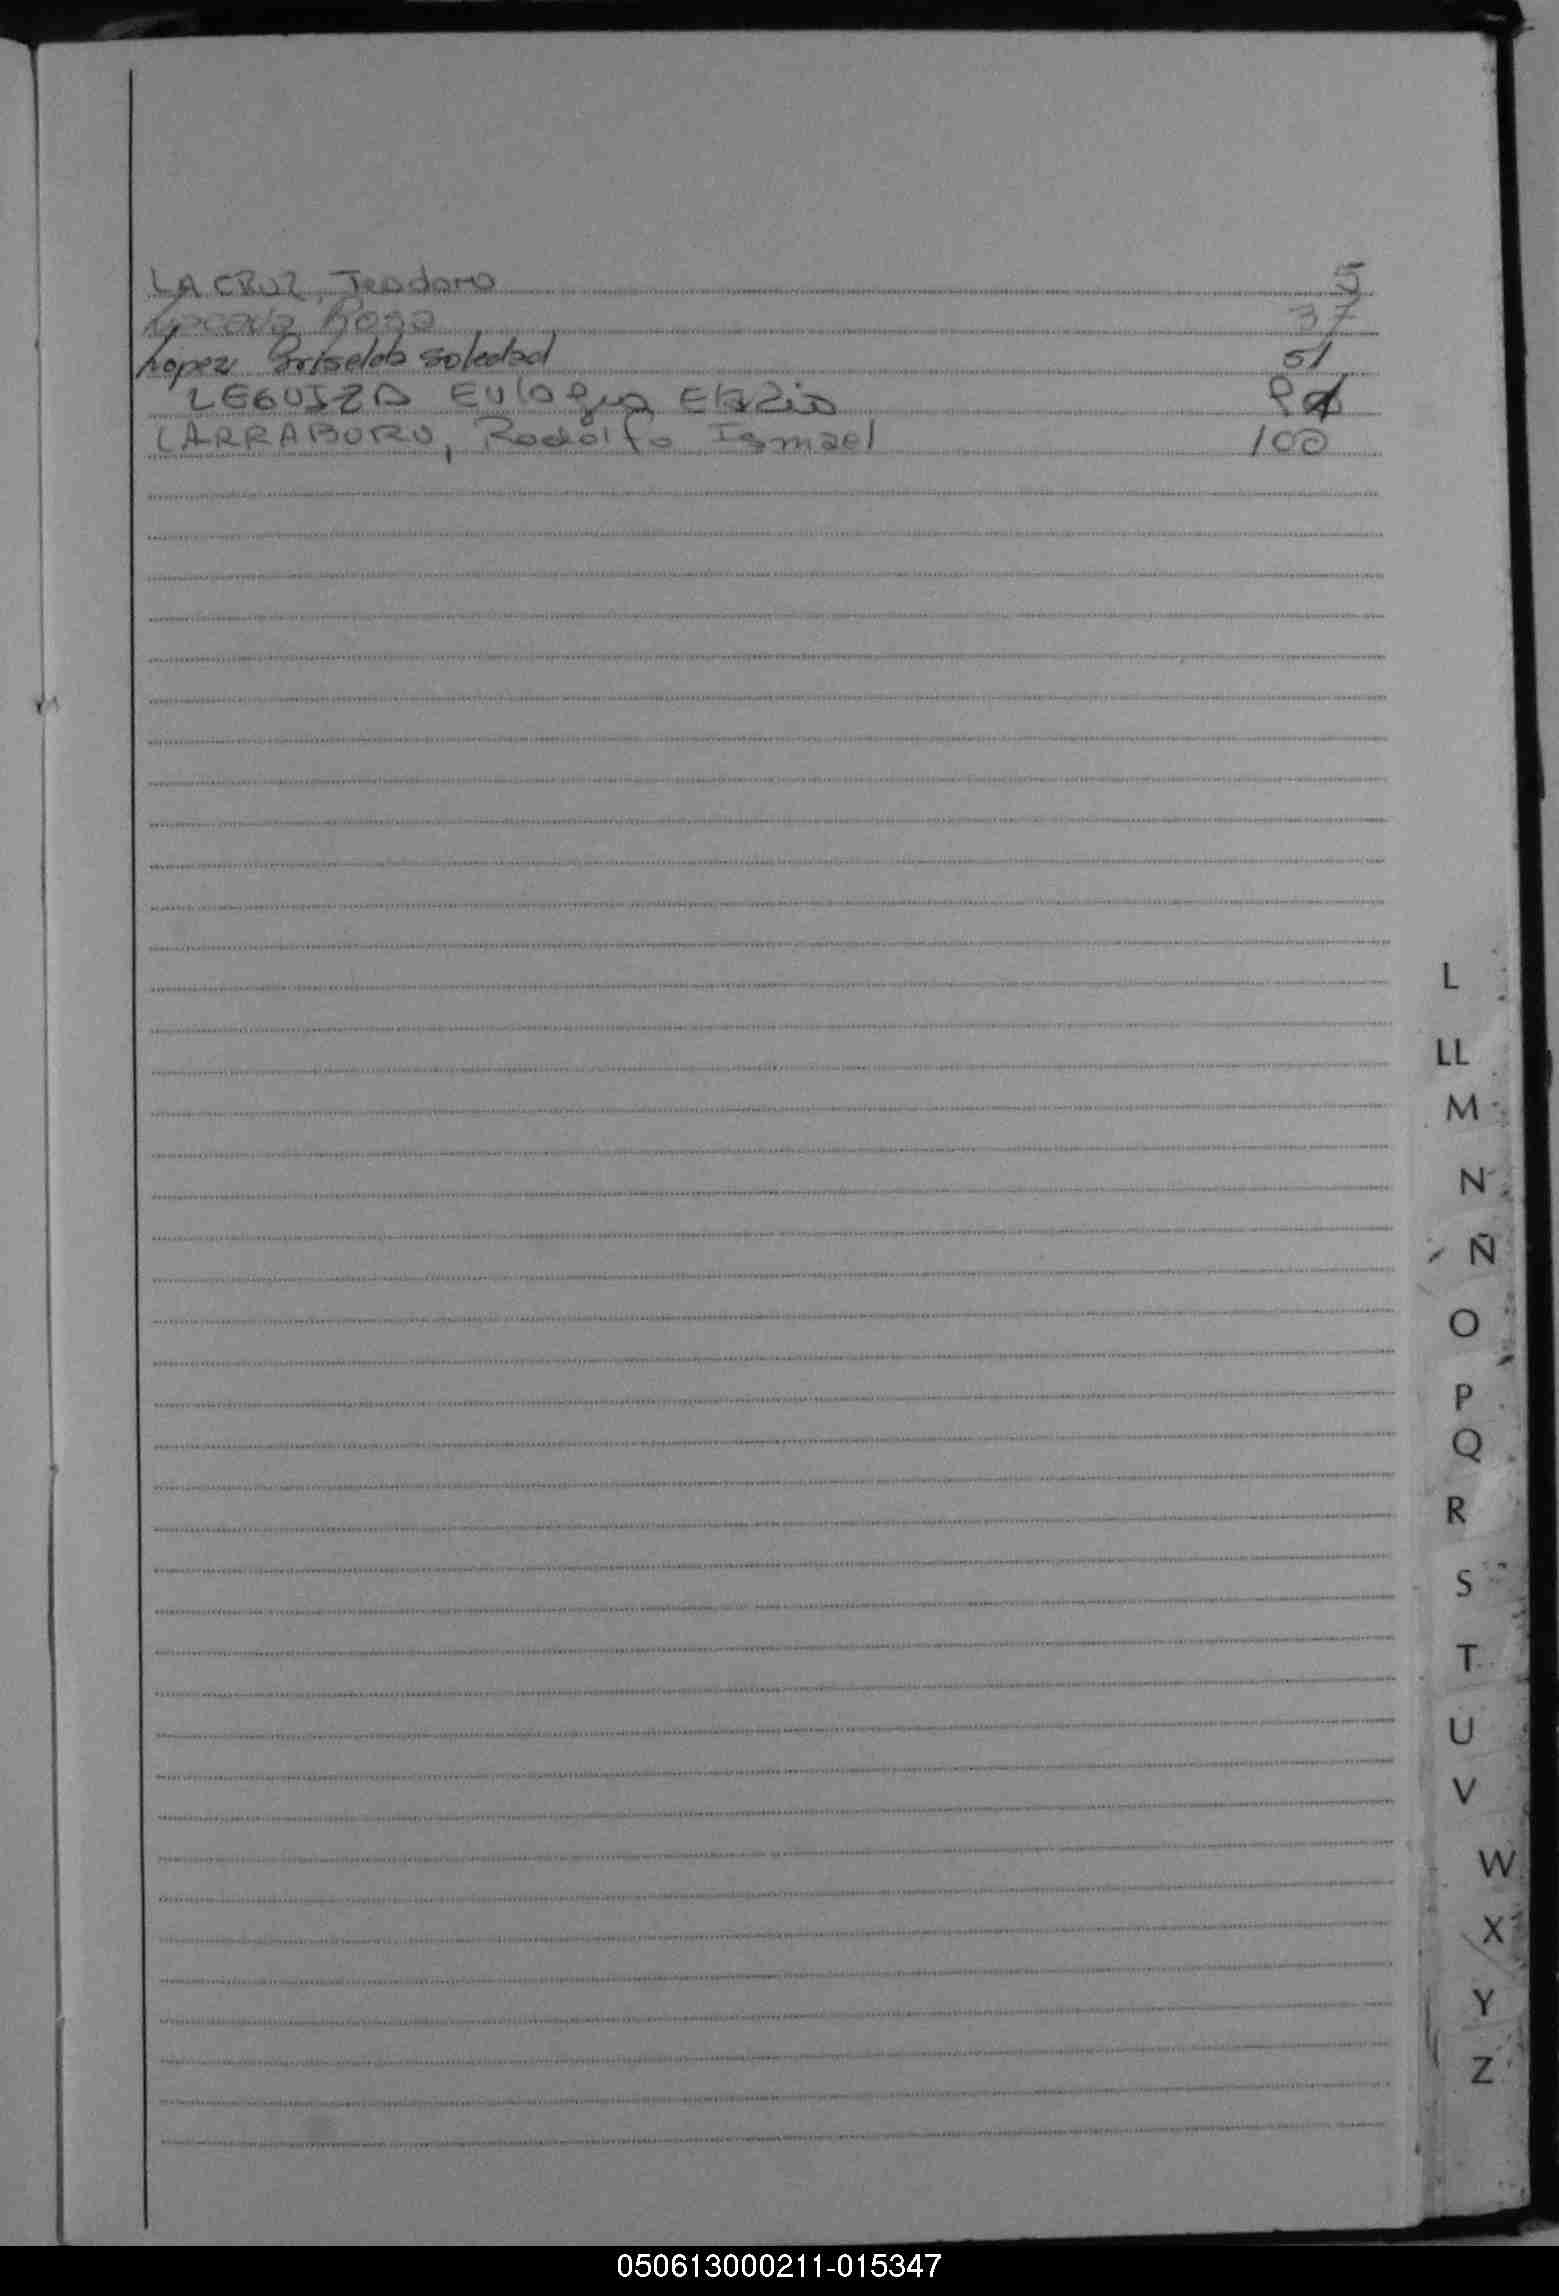 LA CRUZ, Teodoro 5
Rosa 37
Lopez Griselda Soledad 51
LEGUIZA Eulogia
LARRABURU, Rodolfo Ismael 100
L
LL
M
N
Ñ
O
P
Q
R
S
T
U
V
W
X
Y
Z
050613000211-015347